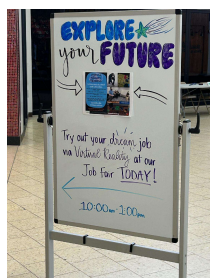 EXPLORE
your FUTURE
Try out your dream job
via Virtual Reality at our
Job Fair TODAY!
10:00am 1:00pm